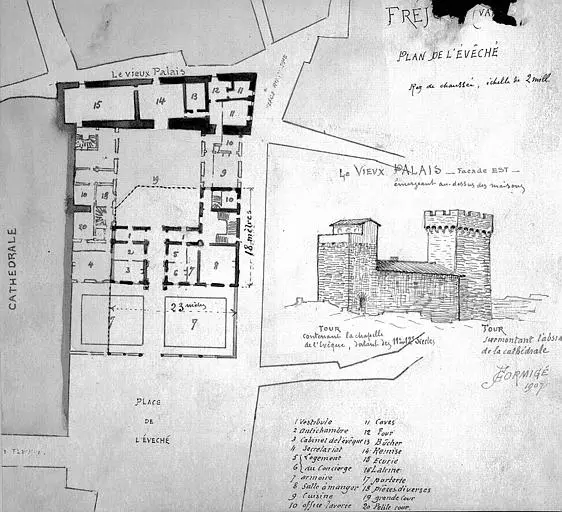 FREJ
PLAN DE L'ÉVÊCHÉ
Rez de chaussée, échelle de 2 mill
Le Vieux Palais
15
14
13
12
11
11
10
9
19
10
18
20
10
18 mètres
1
2
3
4
5
6
7
8
23 mètres
7
7
CATHEDRALE
PLACE
DE
L'ÉVECHÉ
Le VIEUX PALAIS — Façade EST —
émergeant au-dessus des maisons
TOUR
contenant la chapelle
de l'Evêque, datant des 11e-12e Siècles
TOUR
surmontant l'absi
de la cathédrale
FORMIGÉ
1907
1 Vestibule
2 Antichambre
3 Cabinet de l'évêque
4 Secretariat
5 Logement
6 du Concierge
7 armoire
8 Salle à manger
9 Cuisine
10 office laverie
11 Caves
12 Four
13 Bûcher
14 Remise
15 Ecurie
16 Latrine
17 parterre
18 pièces diverses
19 grande cour
20 Petite cour